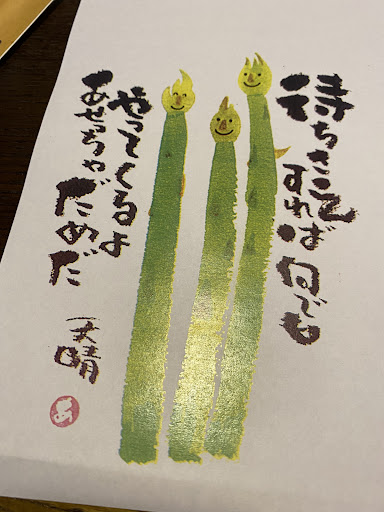 待ちさえ
すれば何でも
やってくるよ
あせっちゃだめだ
天晴